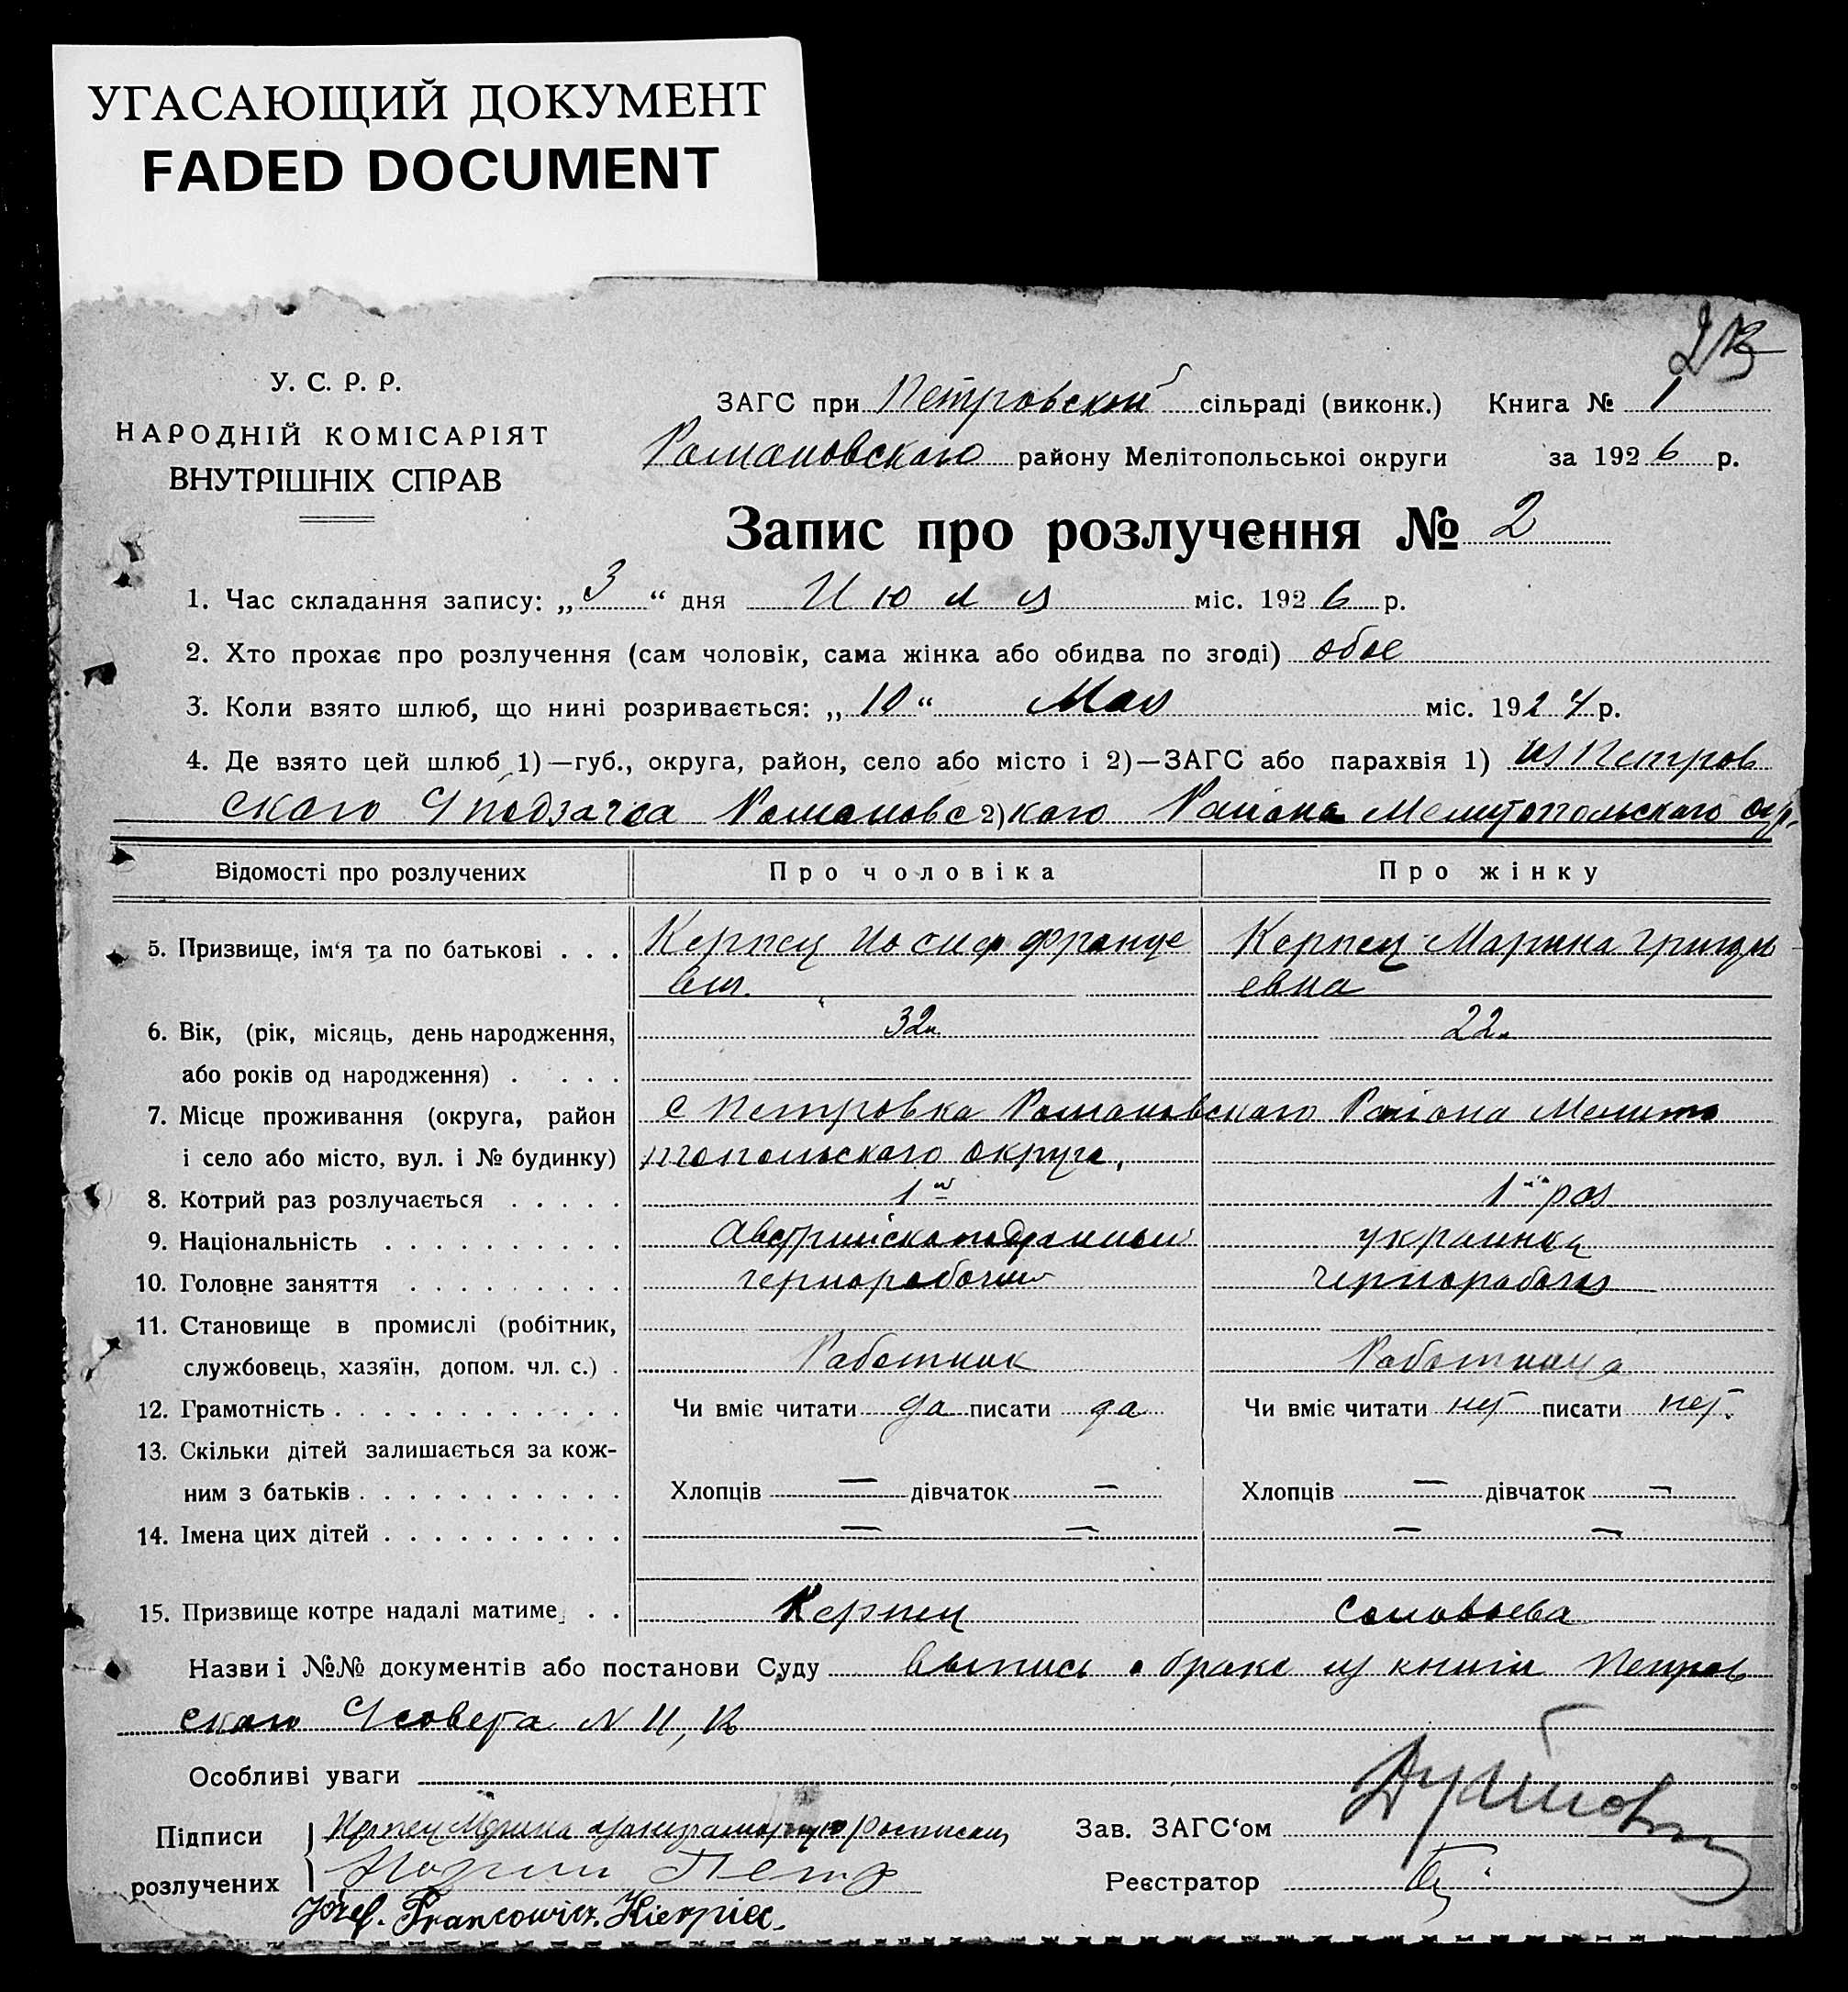 УГАСАЮЩИЙ ДОКУМЕНТ
FADED DOCUMENT
У. С. Р. Р.
НАРОДНІЙ КОМІСАРІЯТ
ВНУТРІШНІХ СПРАВ
ЗАГС при Петровской сільраді (виконк.) Книга № 1
Романовскаго району Мелітопольськоі округи за 1926 р.
Запис про розлучення № 2
1. Час складання запису: „3“ дня Июля міс. 1926 р.
2. Хто прохає про розлучення (сам чоловік, сама жінка або обидва по згоді) обое
3. Коли взято шлюб, що нині розривається: „10“ Мая міс. 1924 р.
4. Де взято цей шлюб 1)—губ., округа, район, село або місто і 2)—ЗАГС або парахвія 1) из Петров
скаго подзагса Романовс 2) каго Района Мелитопольскаго окр.
Відомості про розлучених Про чоловіка Про жінку
5. Призвище, ім‘я та по батькові . . . Керпец Иосиф Францевич. Керпец Марина Григорьевна
6. Вік, (рік, місяць, день народження, 32л. 22л.
або років од народження) . . . .
7. Місце проживання (округа, район с Петровка Романовскаго Района Мелито
і село або місто, вул. і № будинку) польскаго округа,
8. Котрий раз розлучається . . . . . 1й 1й раз
9. Національність . . . . . . . . . . Австрийскоподданный украинка
10. Головне заняття . . . . . . . . . чернорабочий чернорабочая
11. Становище в промислі (робітник,
службовець, хазяїн, допом. чл. с.) . Работник Работница
12. Грамотність . . . . . . . . . . . . Чи вміє читати да писати да Чи вміє читати нет писати нет.
13. Скільки дітей залишається за кож-
ним з батьків . . . . . . . . . . . Хлопців — дівчаток — Хлопців — дівчаток —
14. Імена цих дітей . . . . . . . . . . — — — —
15. Призвище котре надалі матиме . . Керпец Соловьева
Назви і №№ документів або постанови Суду выпись о браке из книги Петров
скаго совета N 11,
Особливі уваги
Підписи Керпец Марина Зав. ЗАГС‘ом
розлучених Петр Реєстратор
Józef. Francowicz. Kierpiec.